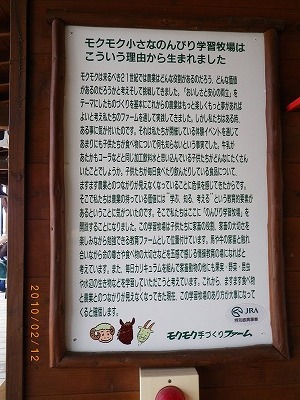 モクモク小さなのんびり学習牧場は
こういう理由から生まれました
モクモクは来るべき21世紀では農業はどんな役割があるのだろう、どんな価値
があるのだろうかと考えそして挑戦してきました。「おいしさと安心の両立」を
テーマにしたものづくりを基本にこれからの農業はもっと楽しくもっと夢があれば
よいと考え私たちのファームを通して実践してきました。しかし私たちはある時、
ある事に気が付いたのです。それは私たちが開催している体験イベントを通して
あまりにも子供たちが食べ物について何も知らないという事実でした。牛乳が
あたかもコーラなどと同じ加工飲料水と思い込んでいる子供たちがどんなにたくさん
いたことでしょうか。子供たちが毎日食べたり飲んだりしている食品について、
ますます農業とのつながりが見えなくなっていることに危惧を感じてきたからです。
そこで私たちは農業の持っている価値には"学ぶ、知る、考える"という教育的要素が
あるということに気がついたのです。そこで私たちはここに「のんびり学習牧場」を
開設することになりました。この学習牧場は子供たちに家畜の役割、家畜の大切さを
楽しみながら勉強できる教育ファームとして位置付けています。馬や牛の家畜と触れ
合いながら命の尊さや食べ物の大切さなどを五感で感じる情操教育の場になればと
考えています。また、毎日カリキュラムを組んで家畜動物の他にも果実・野菜・昆虫
や水辺の生き物などを学習していただこうと考えています。これから、ますます食べ物
と農業とのつながりが見えなくなってきた現在、この学習牧場のあり方が大事になって
くると確信します。
JRA
モクモク手づくりファーム
2010/02/12